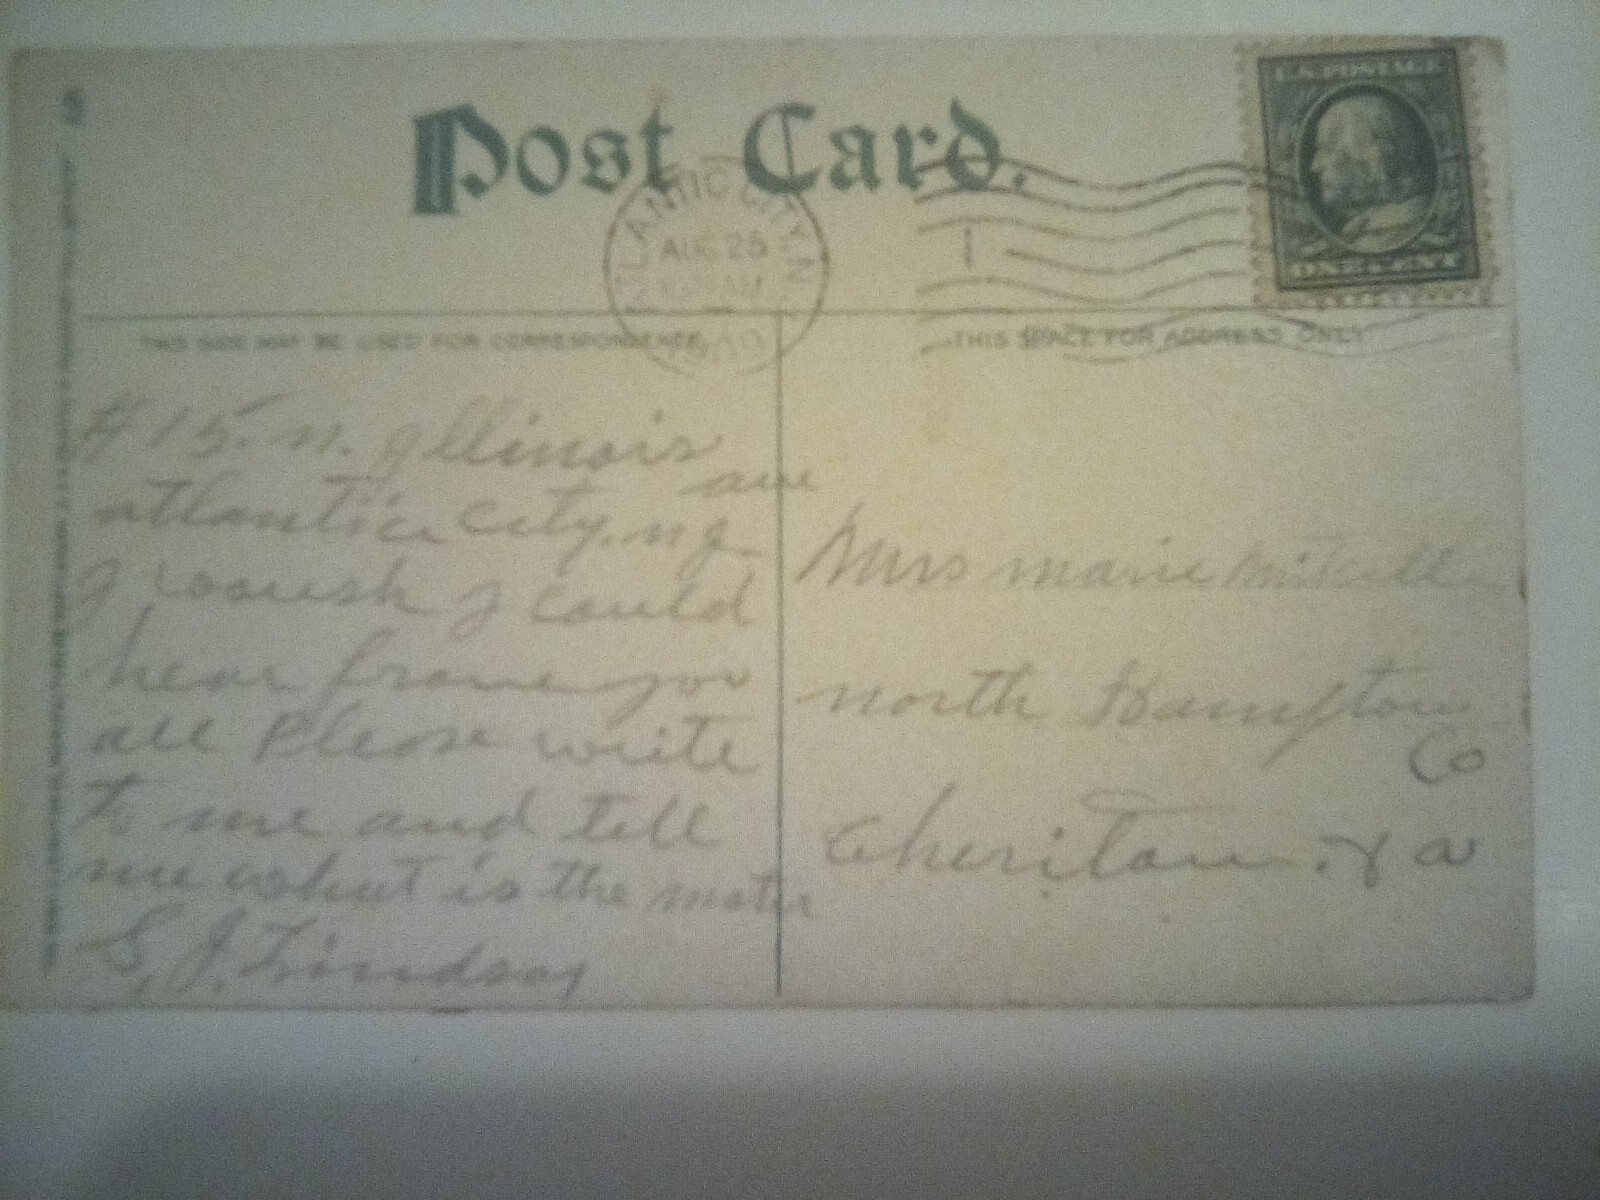 Post Card.
U.S. POSTAGE
ONE CENT
ATLANTIC CITY, N.J.
AUG 25
AM
1909
THIS SIDE MAY BE USED FOR CORRESPONDENCE
THIS SPACE FOR ADDRESS ONLY
# 15. n. Illinois
ave
atlantic City. n J
I woush I could
hear frome you
all Please write
to me and tell
me what is the mater
S, J. Lindsay
Mrs marie
north Hampton
Co
Cheriton. Va